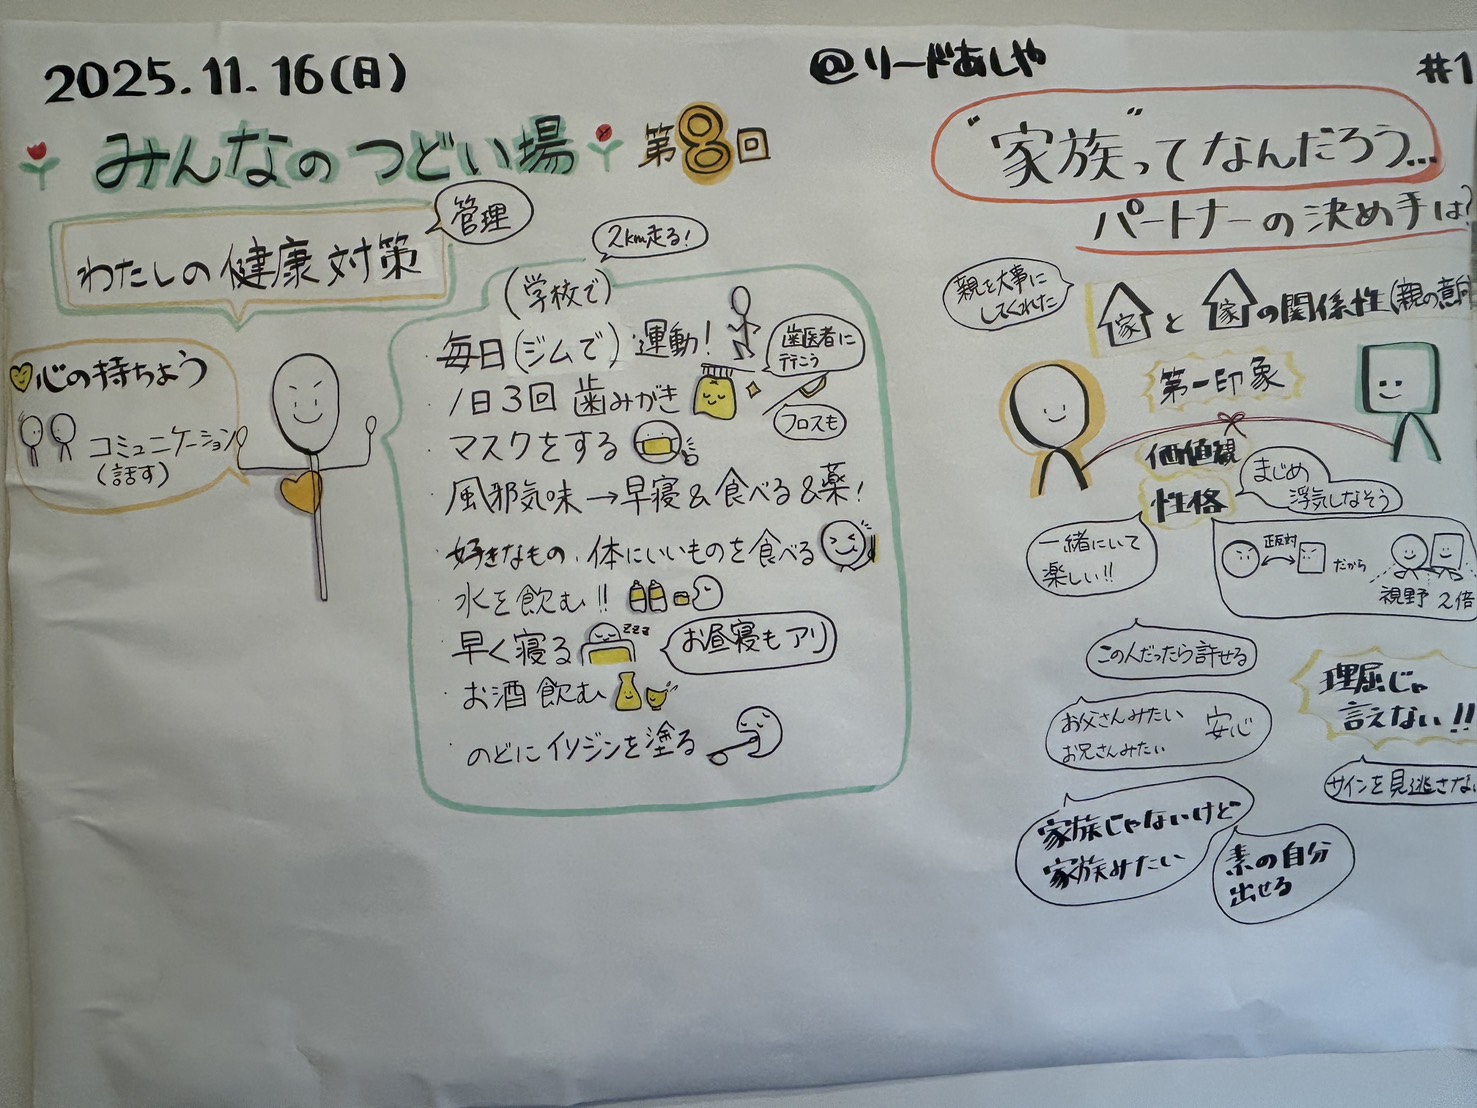 2025.11.16(日)
@リードあしや
#1
みんなのつどい場 第8回
わたしの健康対策
管理
心の持ちよう
コミュニケーション
(話す)
2km走る!
(学校で)
・毎日(ジムで)運動!
歯医者に
行こう
・1日3回 歯みがき
フロスも
・マスクをする
・風邪気味→早寝&食べる&薬!
・好きなもの、体にいいものを食べる
・水を飲む!!
・早く寝る
zzz
お昼寝もアリ
・お酒飲む
・のどにイソジンを塗る
"家族"ってなんだろう...
パートナーの決め手は?
親を大事に
してくれた
家と家の関係性(親の意向
第一印象
価値観
性格
まじめ
浮気しなそう
一緒にいて
楽しい!!
正反対
だから
視野2倍
この人だったら許せる
お父さんみたい
お兄さんみたい
安心
理屈じゃ
言えない!!
サインを見逃さな
家族じゃないけど
家族みたい
素の自分
出せる